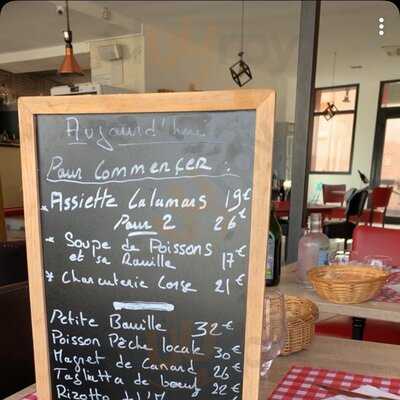 Aujourd'hui
Pour Commencer :
* Assiette Calamars 19€
Pour 2 26€
* Soupe de Poissons
et sa Rouille 17€
* Charcuterie Corse 21€
Petite Bouille 32€
Poisson Pêche locale 30€
Magret de Canard 26€
Tagliatta de boeuf 22€
Rizotto